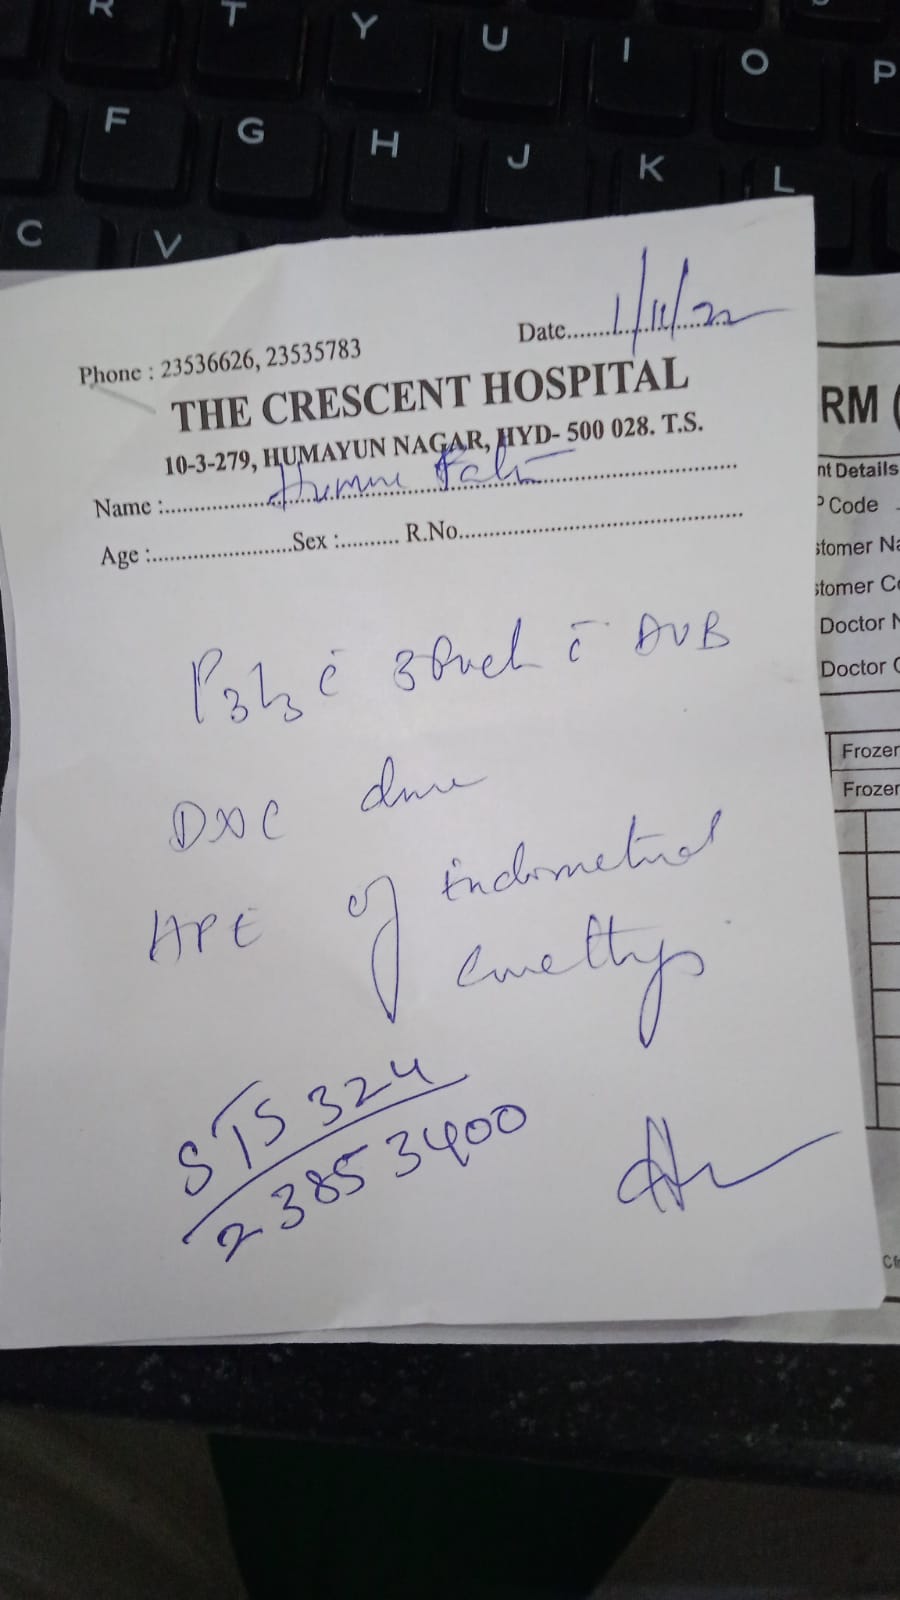 R T Y U I O P
F G H J K L
C V
Date.......1/11/22
Phone : 23536626, 23535783
THE CRESCENT HOSPITAL
10-3-279, HUMAYUN NAGAR, HYD- 500 028. T.S.
Name :
Age :.......................Sex :.......... R.No.
P3L3 c̄ c̄ AUB
D&C done
HPE of endometrial
curettings
STS 324
23853400
RM (
nt Details
P Code
stomer Na
stomer Co
Doctor N
Doctor C
Frozen
Frozen